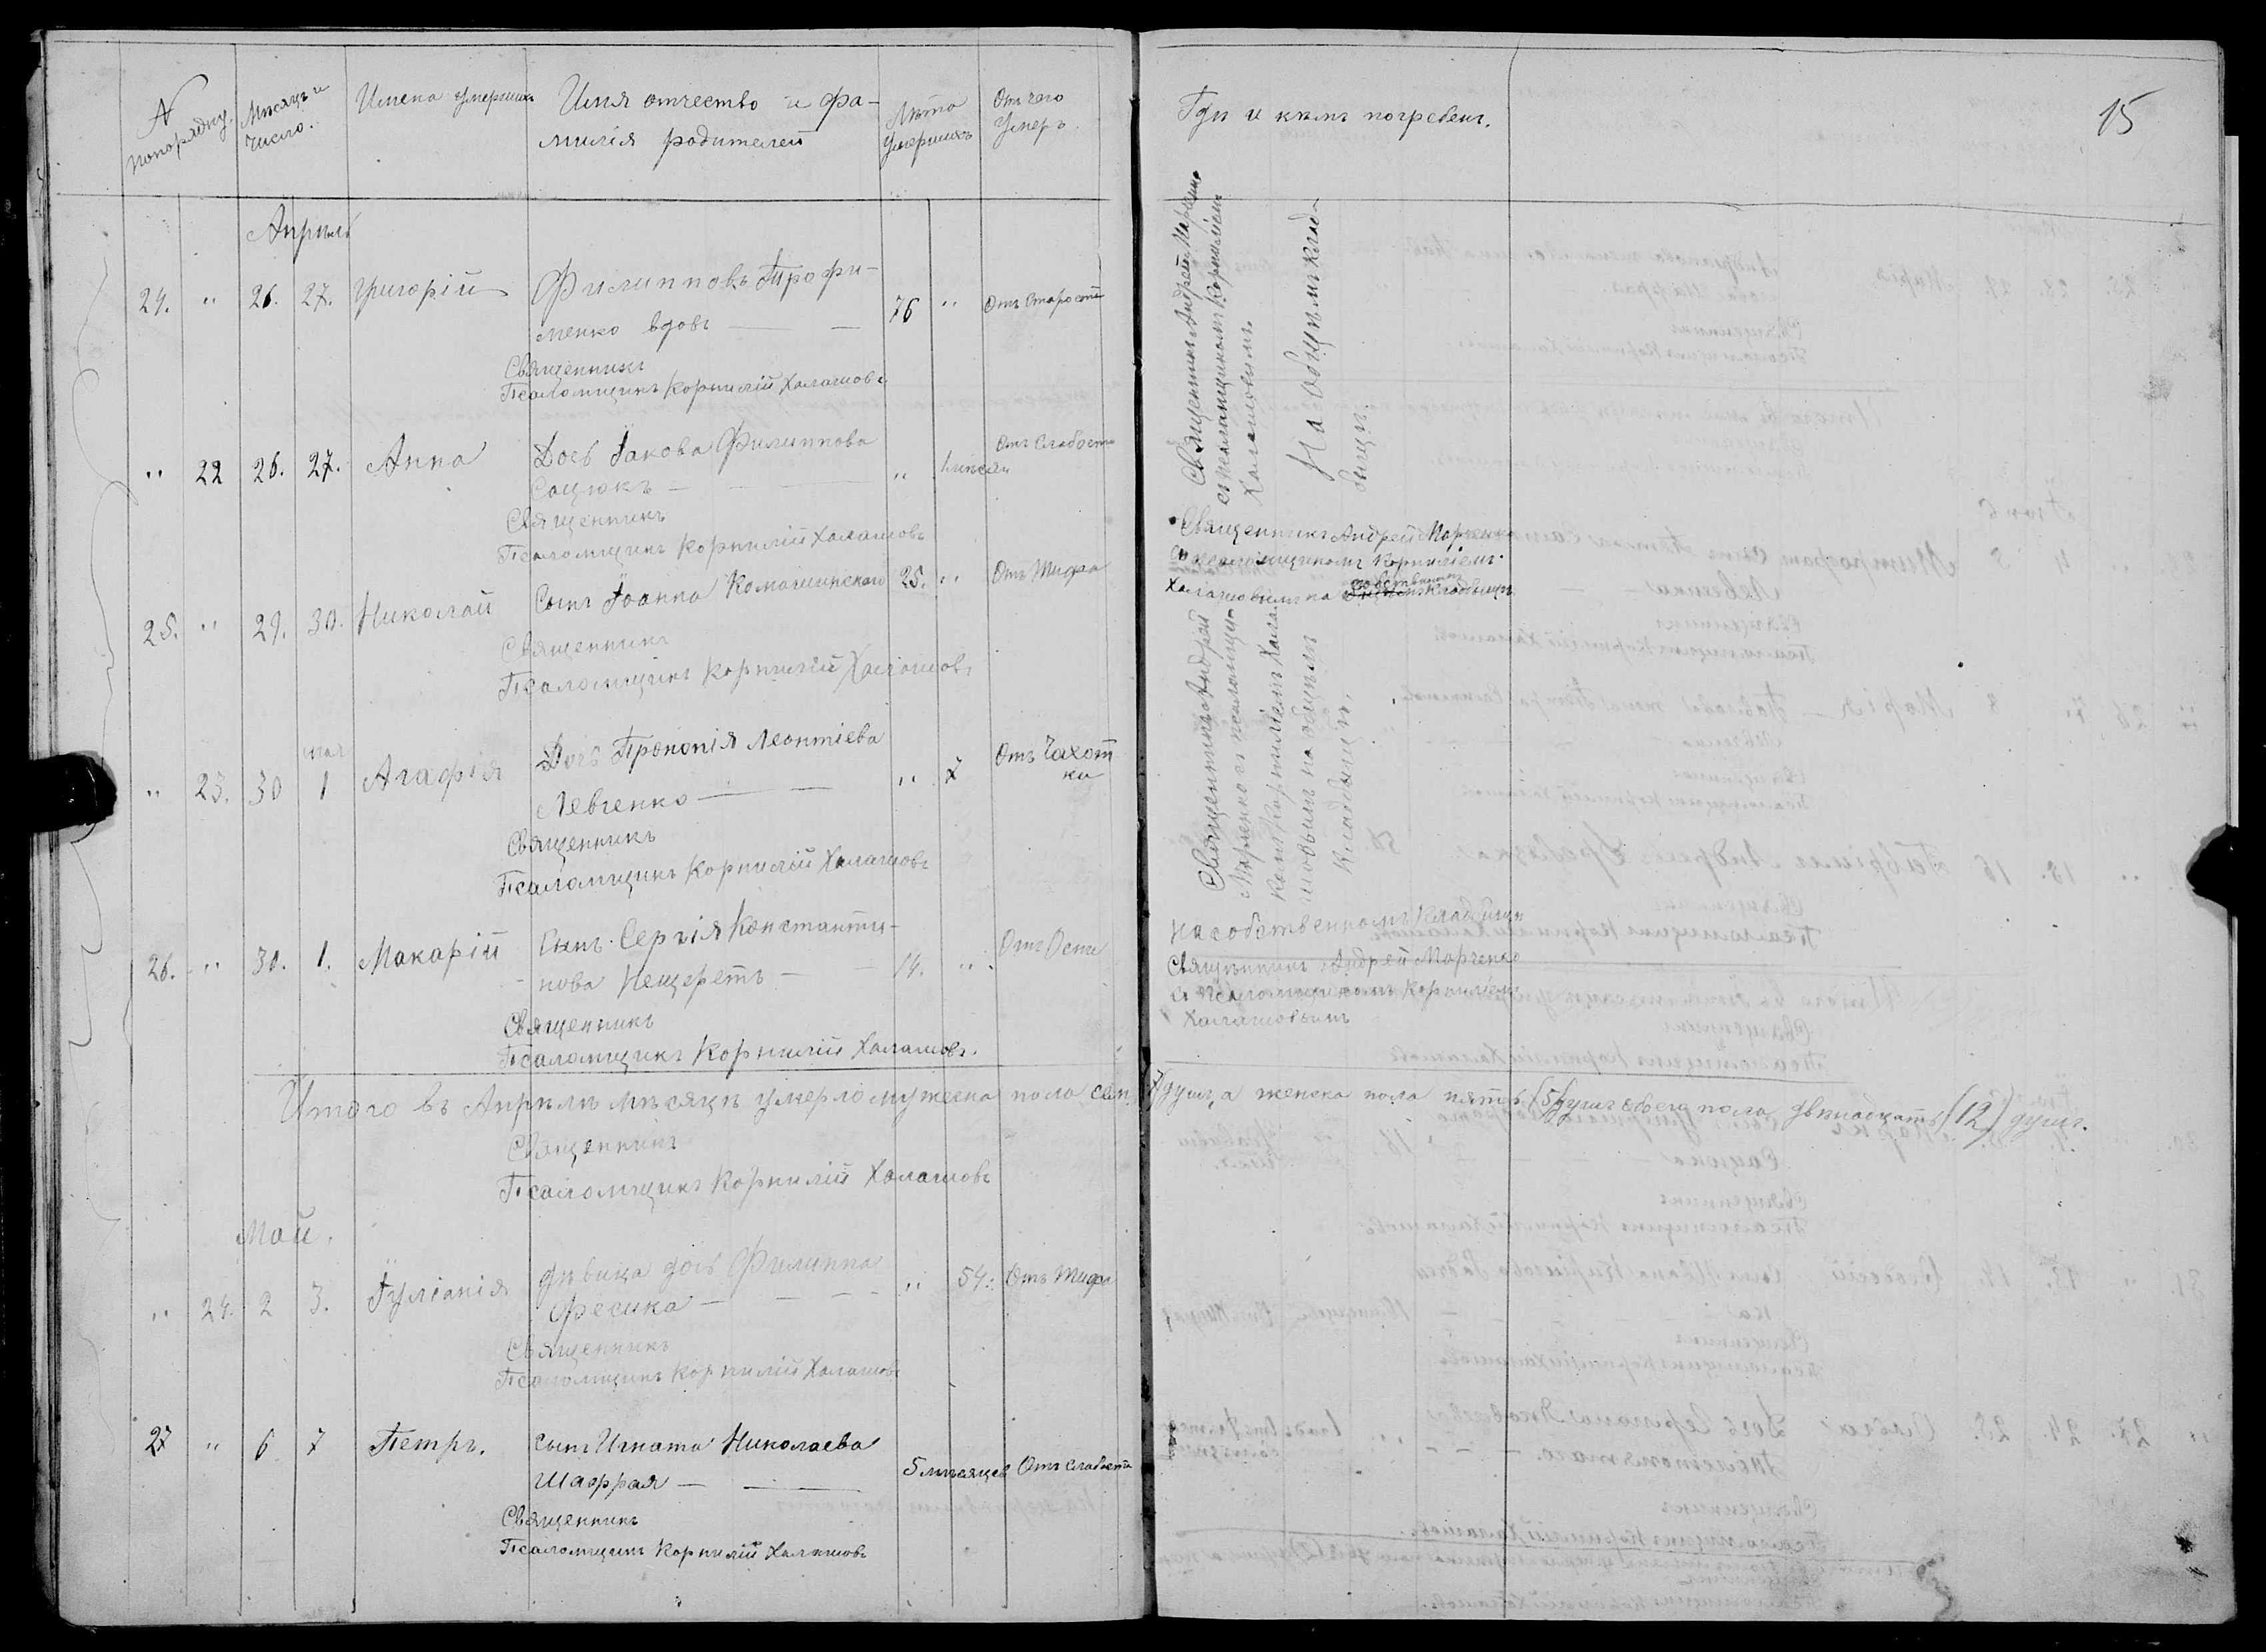 15
№ попорядку.
Мѣсяцъ и число.
Имена умершихъ
Имя отчество и фа-
милія родителей
Лѣта
умершихъ
Отъ чего
умеръ
Гдѣ и кѣмъ погребенъ.
Апрѣль
24. " 26. 27. Григорій Филипповъ Трофи- 76 " Отъ старости
менко вдовъ — —
Священникъ
Псаломщикъ Корнилій Халашовъ
" 22 26. 27. Анна Дочь Іакова Филиппова " 1 мѣсяцъ Отъ слабости
Сацюкъ —
Священникъ
Псаломщикъ Корнилій Халашовъ
25. " 29. 30. Николай Сынъ Іоанна Комашинскаго 25. " Отъ Тифа
Священникъ
Псаломщикъ Корнилій Халашовъ
мая
" 23. 30 1 Агафія Дочь Прокопія Леонтіева " 7 Отъ Чахот
Левченко — — ки
Священникъ
Псаломщикъ Корнилій Халашовъ
26. " 30. 1. Макарій Сынъ Сергія Константи- 14. " Отъ Оспи
нова Нещеретъ —
Священникъ
Псаломщикъ Корнилій Халашовъ.
Священникъ Андрей Марченко
съ псаломщикомъ Корниліемъ
Халашовимъ.
На общемъ клад-
бищѣ.
Священникъ Андрей Марченко
съ псаломщикомъ Корниліемъ
Халашовимъ на собственномъ кладбищѣ
Священникъ Андрей
Марченко съ псаломщи-
комъ Корниліемъ Хала-
шовымъ на общемъ
кладбищѣ.
На собственномъ кладбищѣ
Священникъ Андрей Марченко
съ псаломщикомъ Корниліемъ
Халашовымъ
Итого въ Апрѣлѣ мѣсяцѣ умерло мужеска пола сем (7) душъ, а женска пола пять (5) душъ обоего пола двѣнадцать (12) душъ.
Священникъ
Псаломщикъ Корнилій Халашовъ
Май.
" 24. 2 3. Іуліанія дѣвица дочь Филиппа " 54. Отъ Тифа
Фесика — — —
Священникъ
Псаломщикъ Корнилій Халашовъ
27 " 6 7 Петръ. сынъ Игната Николаева 5 мѣсяцев Отъ слабости
Шаффая — —
Священникъ
Псаломщикъ Корнилій Халашовъ